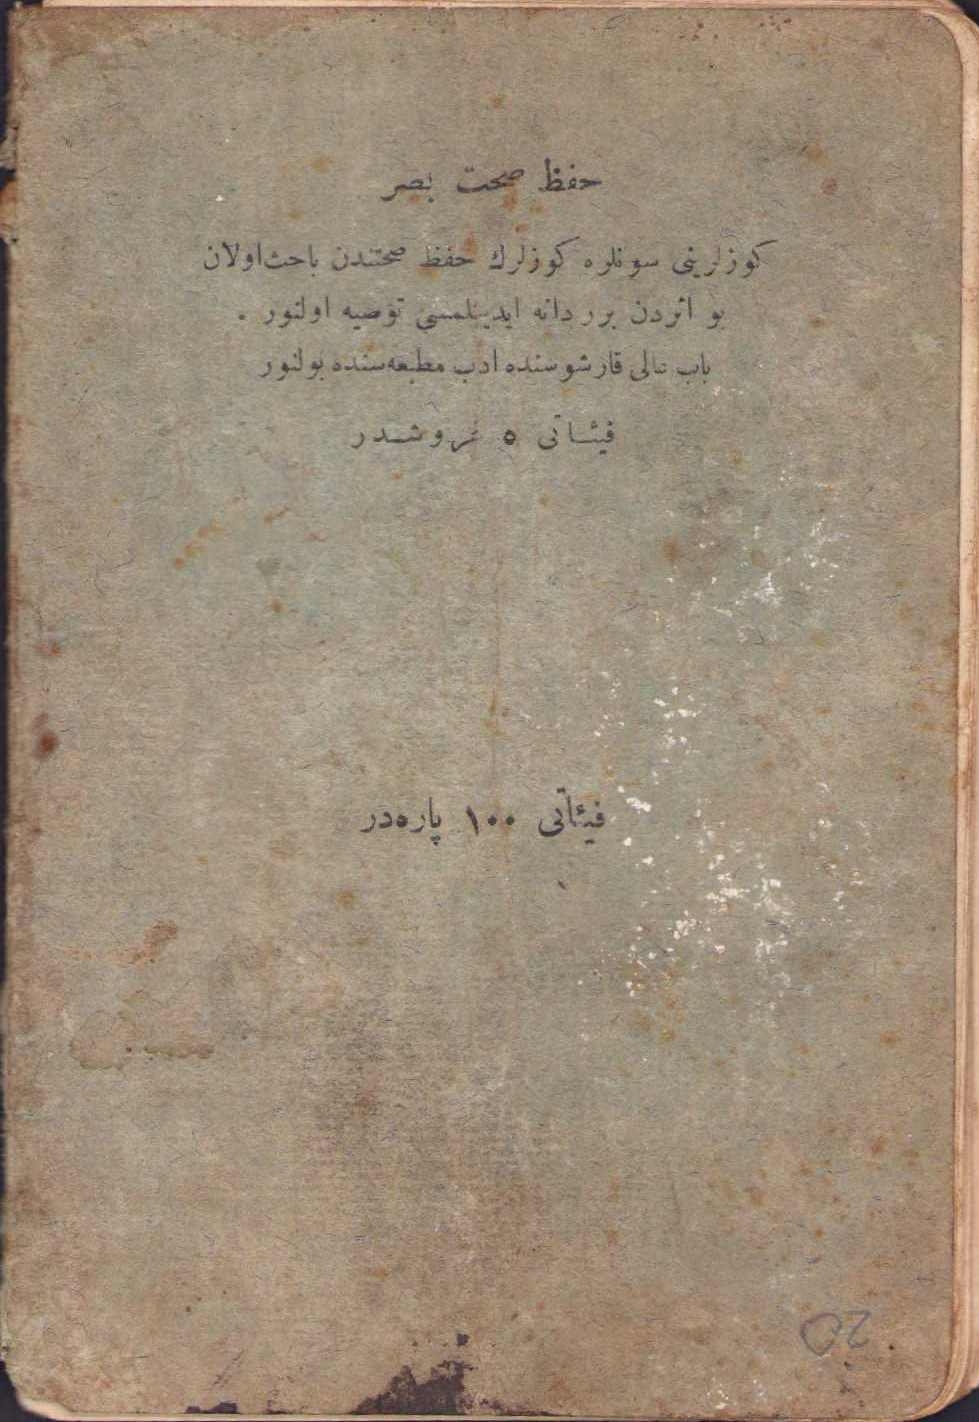 حفظ صحت بصر
كوزلرينى سونلره كوزلرك حفظ صحتندن باحث اولان
بو اثردن برر دانه ايدينلمسى توصيه اولنور .
باب عالى قارشوسنده ادب مطبعه‌سنده بولنور
فيئاتى ٥ غروشدر
فيئاتى ١٠٠ پاره‌در
20